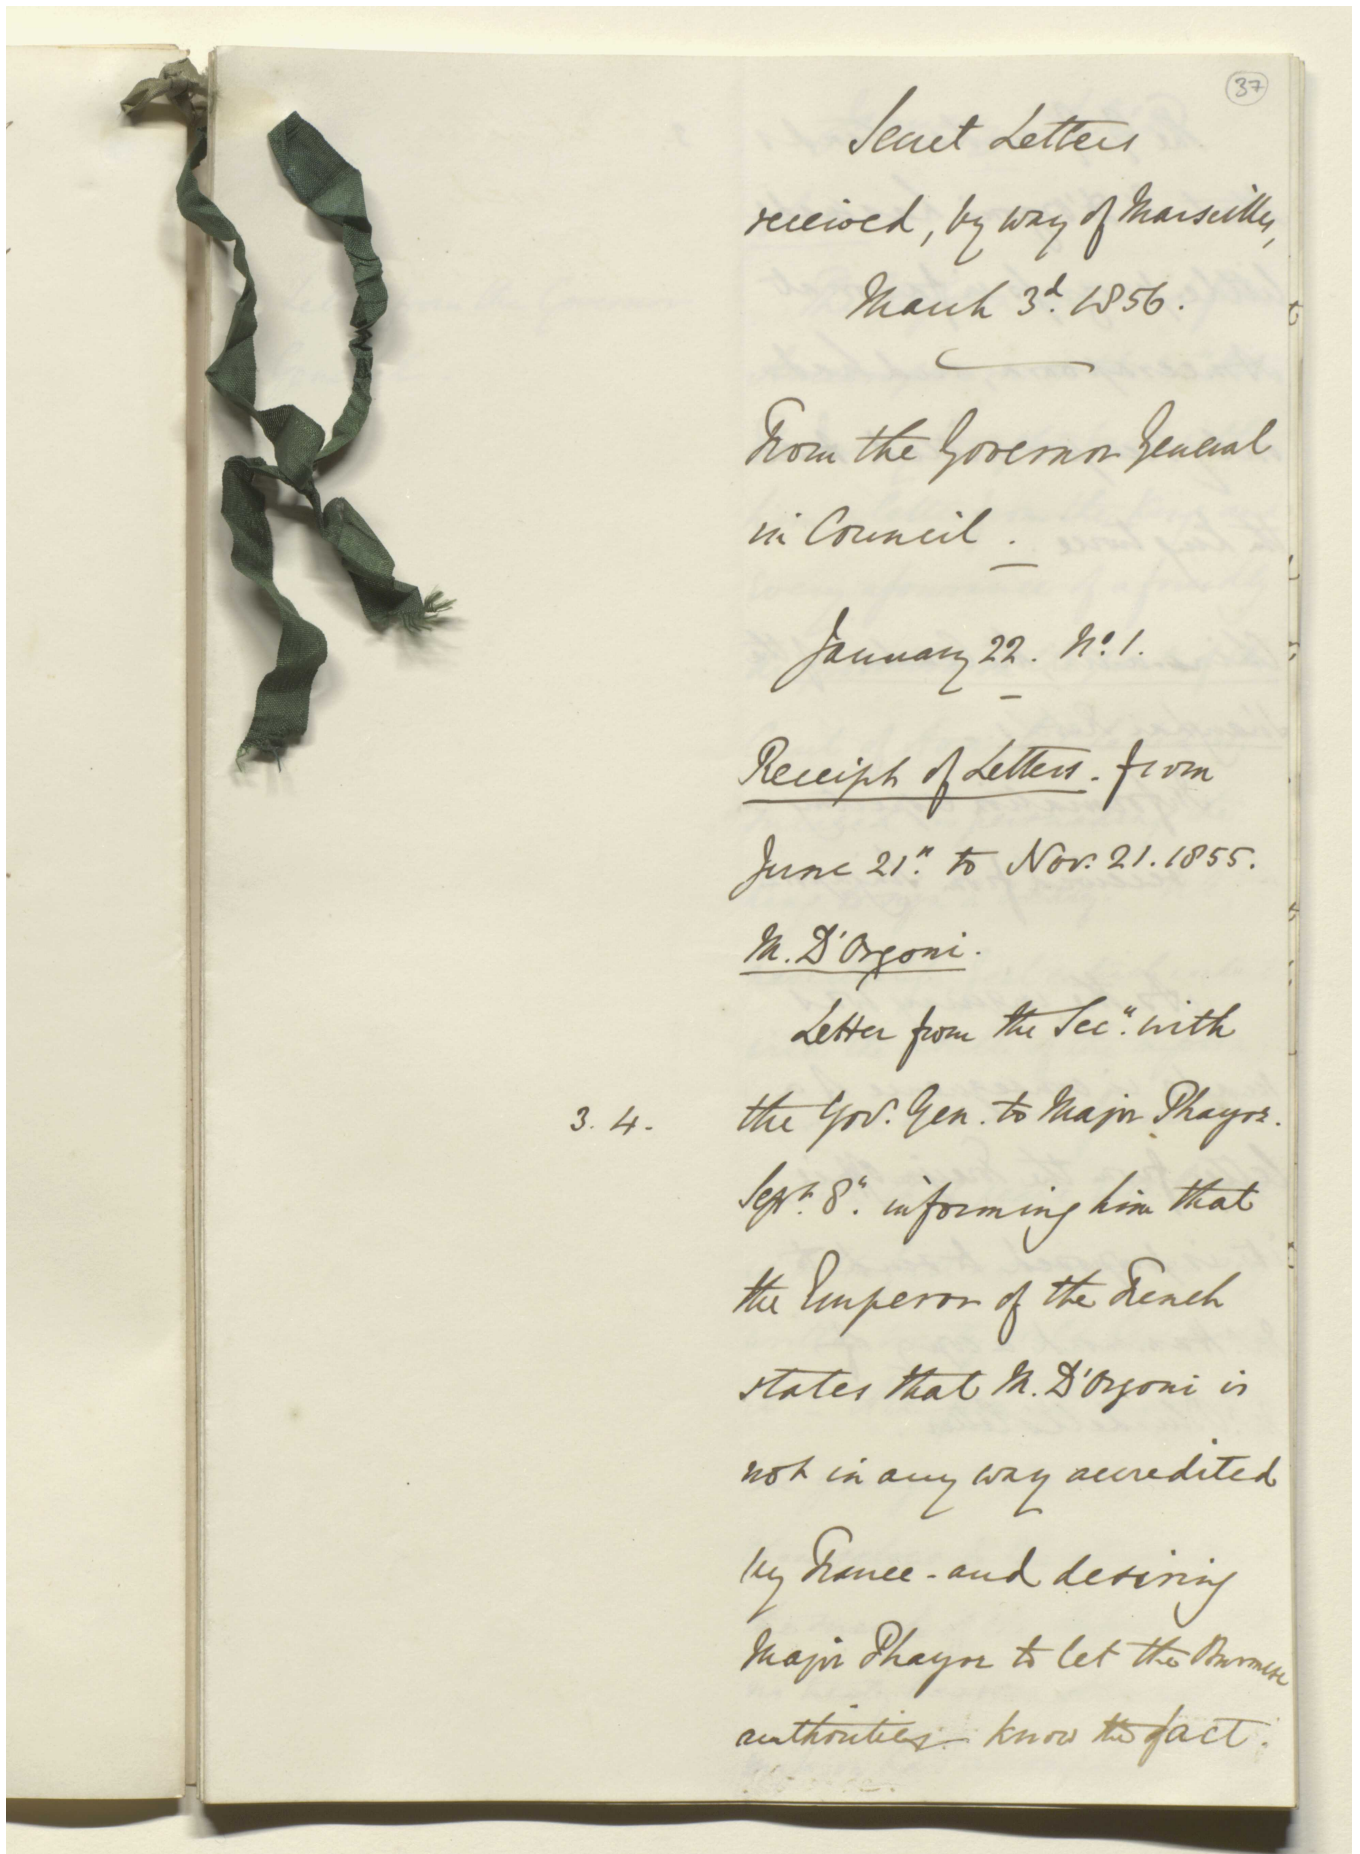 37
Secret Letters
received, by way of Marseilles,
March 3d. 1856.
From the Governor General
in Council.
January 22. No. 1.
Receipt of Letters. from
June 21st. to Nov. 21. 1855.
M. D'Orgoni.
Letter from the Secy. with
3. 4. the Gov. Gen. to Major Phayre.
Septr. 8th. informing him that
the Emperor of the French
states that M. D'Orgoni is
not in any way accredited
by France - and desiring
Major Phayre to let the Burmese
authorities know the fact.